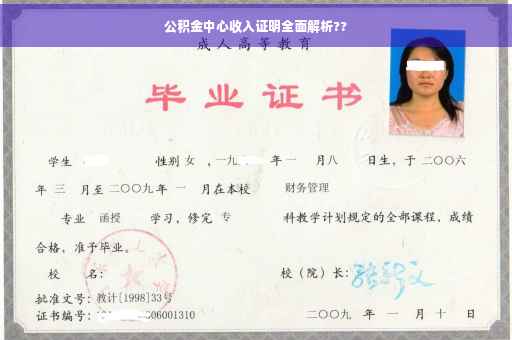 公积金中心收入证明全面解析??
成人高等教育
毕业证书
学生 性别 女 ，一九 年 一 月八 日生，于 二〇〇六
年 三 月至 二〇〇九年 一 月在本校 财务管理
专业 函授 学习，修完 专 科教学计划规定的全部课程，成绩
合格，准予毕业。
校 名： 校（院）长：
批准文号：教计[1998]33号
证书编号： 06001310 二〇〇九 年 一 月 十 日